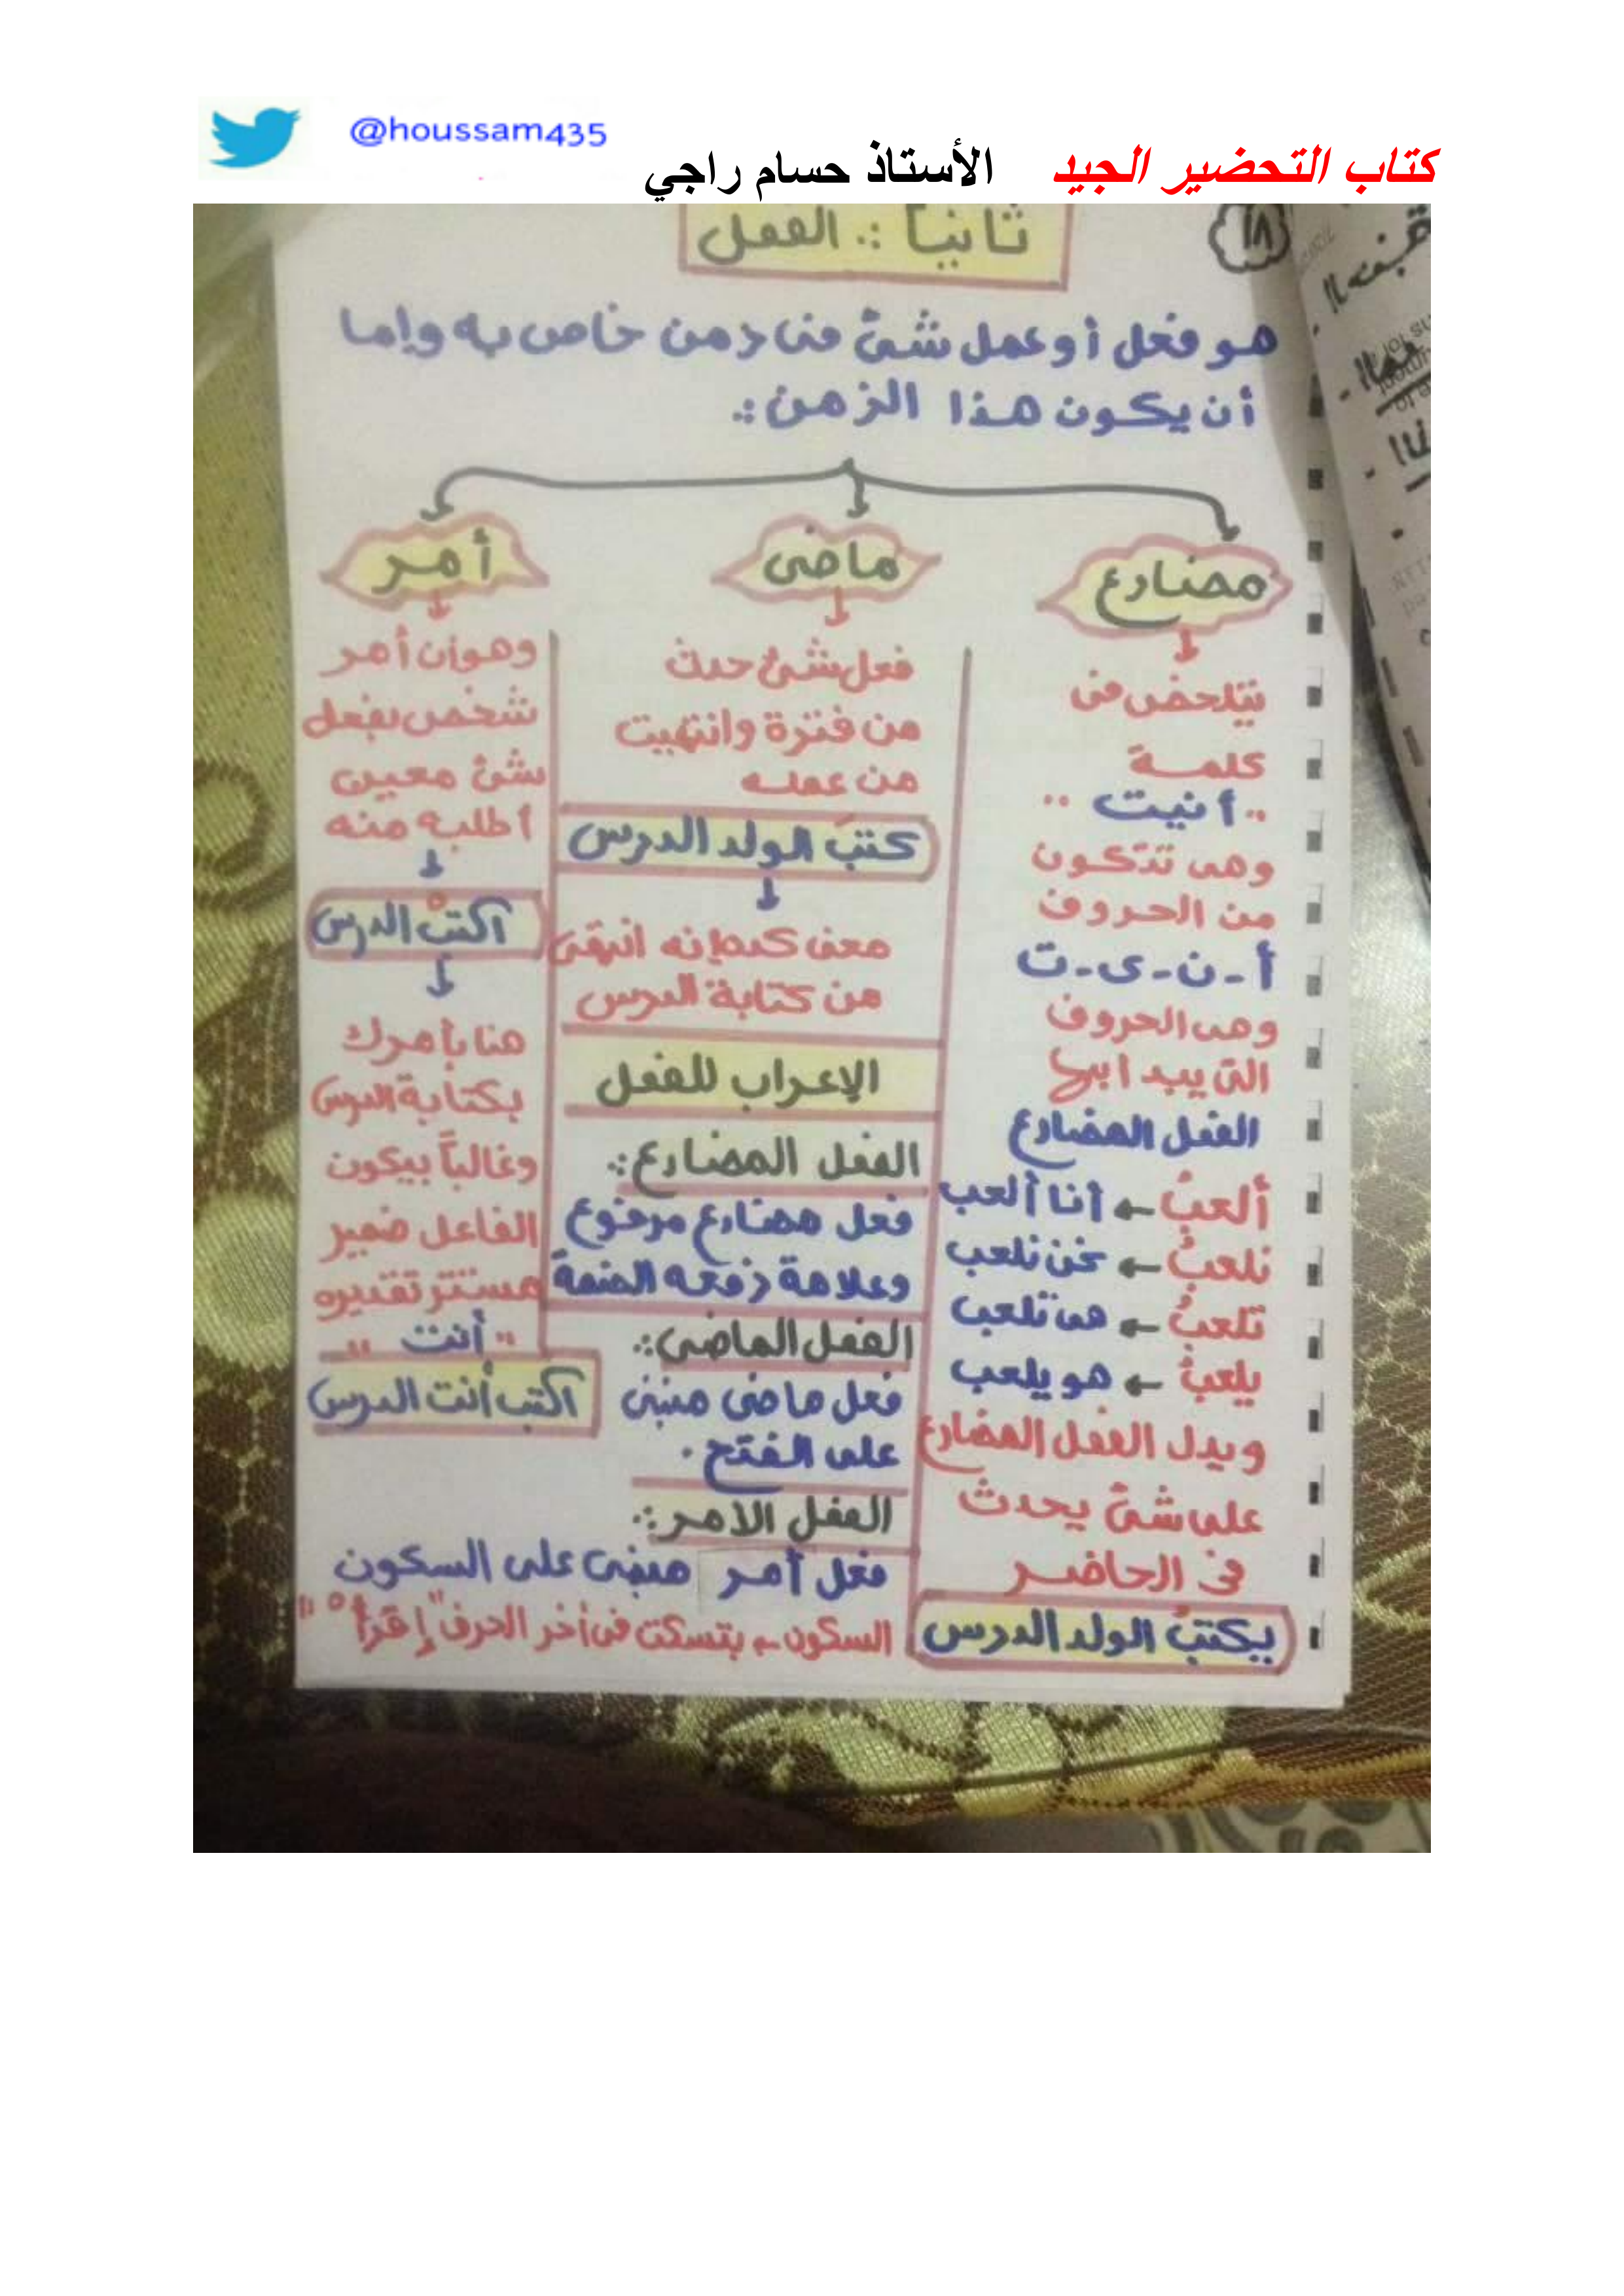 @houssam435
كتاب التحضير الجيد الأستاذ حسام راجي
١٨
ثانياً :. الفعل
هو فعل أو عمل شئ فى زمن خاص به وإما
أن يكون هذا الزمن :.
مضارع
يتلخص فى
كلمة
"أنيت"
وهى تتكون
من الحروف
أ - ن - ى - ت
وهى الحروف
التى يبدأ بها
الفعل المضارع
ألعبُ ← أنا ألعب
نلعبُ ← نحن نلعب
تلعبُ ← هى تلعب
يلعبُ ← هو يلعب
ويدل الفعل المضارع
على شئ يحدث
فى الحاضر
يكتبُ الولد الدرس
ماضى
فعل شئ حدث
من فترة وانتهيت
من عمله
كتبَ الولد الدرس
معنى كده إنه انتهى
من كتابة الدرس
الإعراب للفعل
الفعل المضارع :.
فعل مضارع مرفوع
وعلامة رفعه الضمة
الفعل الماضى :.
فعل ماضى مبنى
على الفتح .
الفعل الأمر :.
فعل أمر مبنى على السكون
السكون ← بتسكت فى أخر الحرف "إقرأْ"
أمر
وهو أن أمر
شخص بفعل
شئ معين
أطلبه منه
اكتبْ الدرس
هنا بأمرك
بكتابة الدرس
وغالباً بيكون
الفاعل ضمير
مستتر تقديره
"أنت"
اكتب أنت الدرس